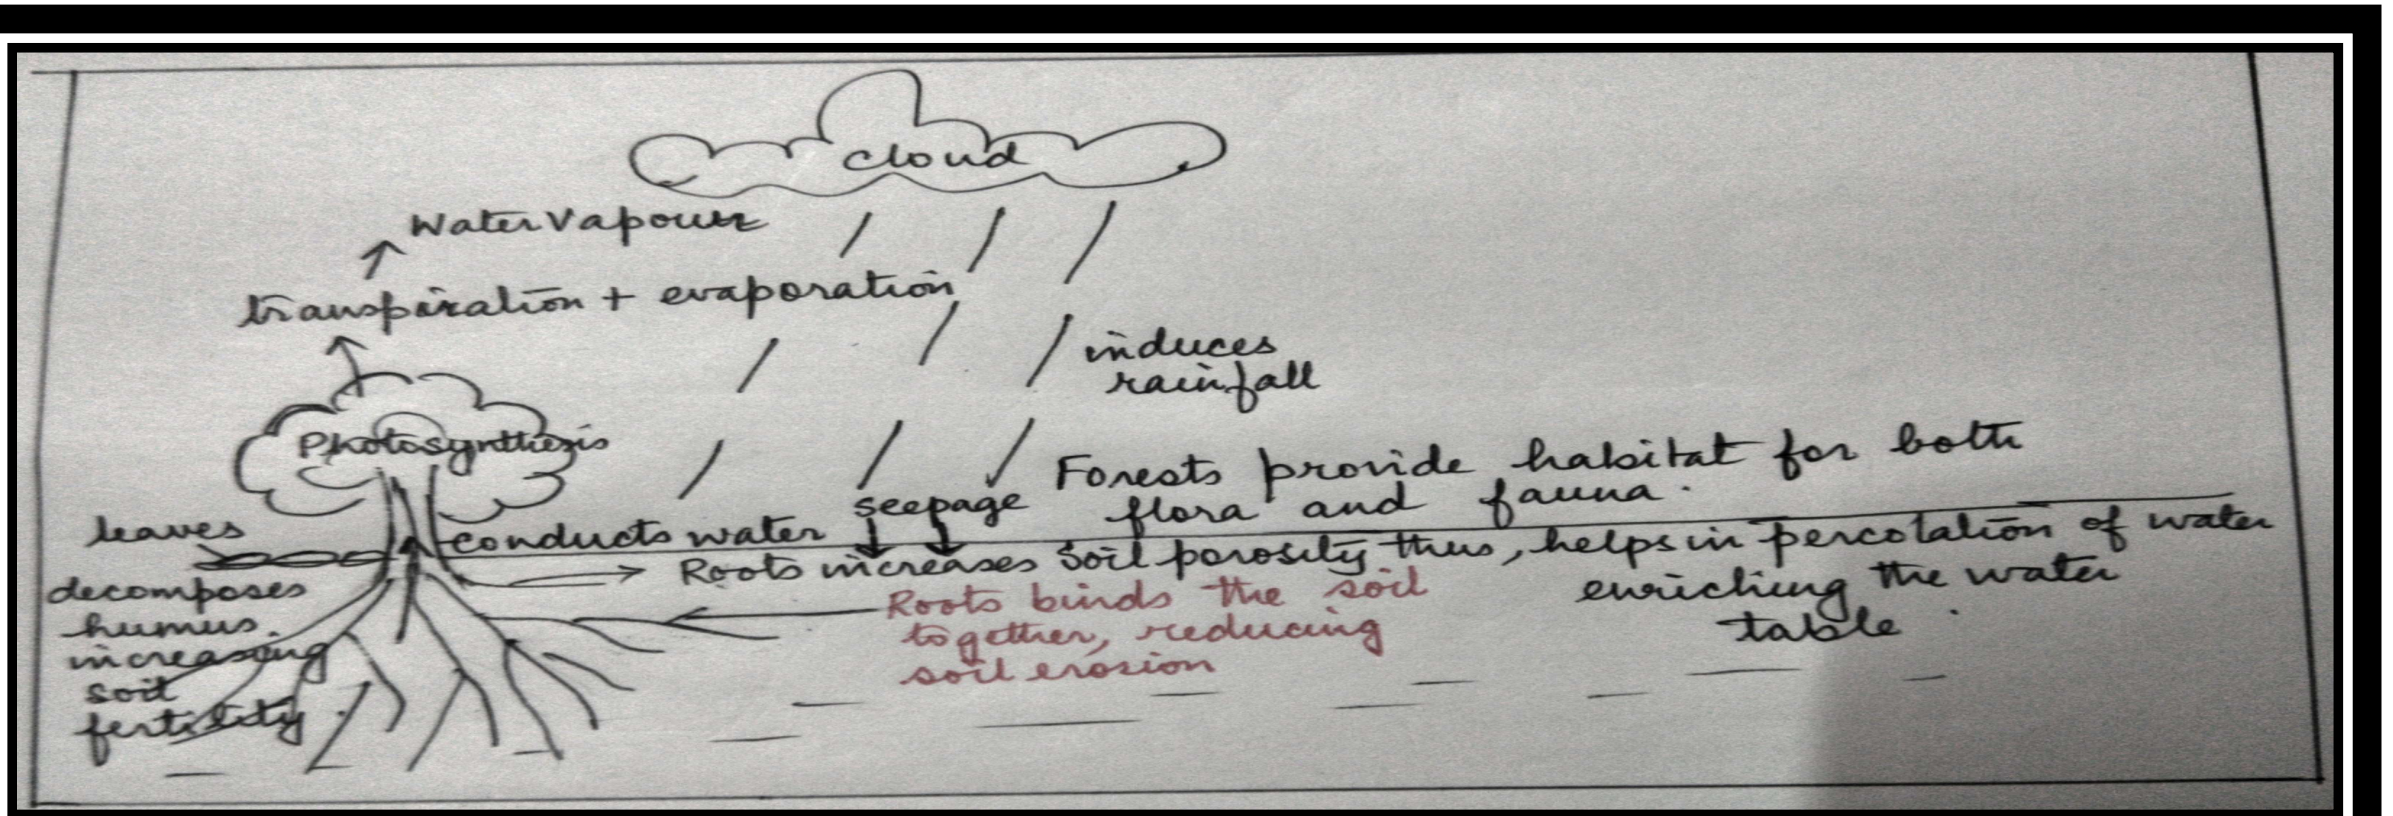 cloud
Water Vapour
transpiration + evaporation
induces
rainfall
Photosynthesis
Forests provide habitat for both
flora and fauna.
seepage
leaves
conducts water
Roots increases soil porosity thus, helps in percolation of water
enriching the water
table.
decomposes
humus.
increasing
soil
fertility.
Roots binds the soil
together, reducing
soil erosion